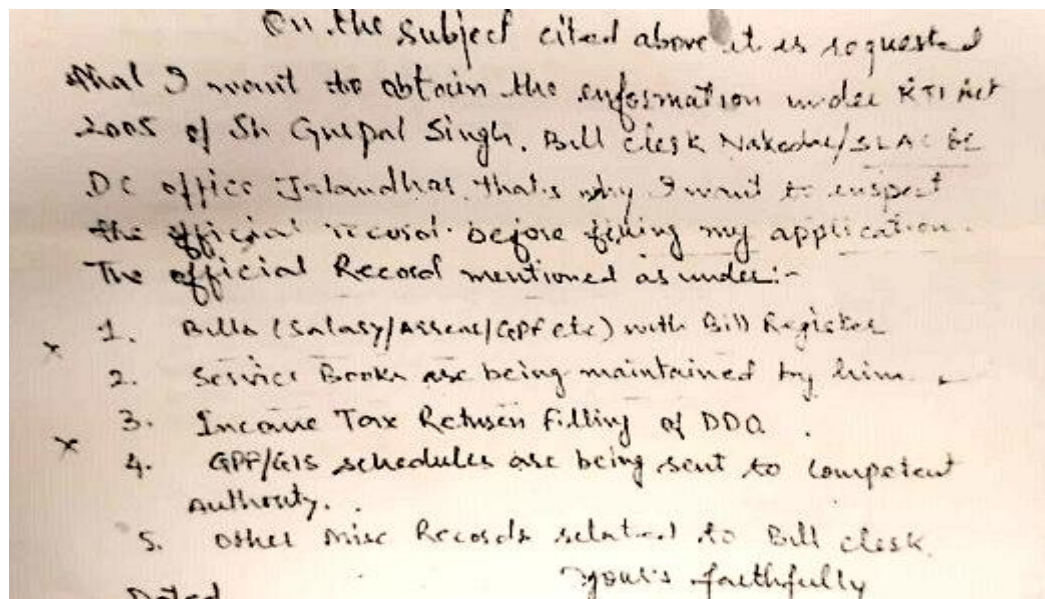 On the subject cited above it is requested
that I want to obtain the information under RTI Act
2005 of Sh Gurpal Singh. Bill Clerk Nakodar/SLAC
DC office Jalandhar. that's why I want to inspect
the official record before filling my application.
The official Record mentioned as under:-
1. Bills (Salary/Arrear/GPF etc) with Bill Register
2. Service Books are being maintained by him.
3. Income Tax Return Filling of DDO.
4. GPF/GIS schedules are being sent to competent
Authority.
5. Other Misc Records related to Bill clerk.
Your's faithfully
Dated